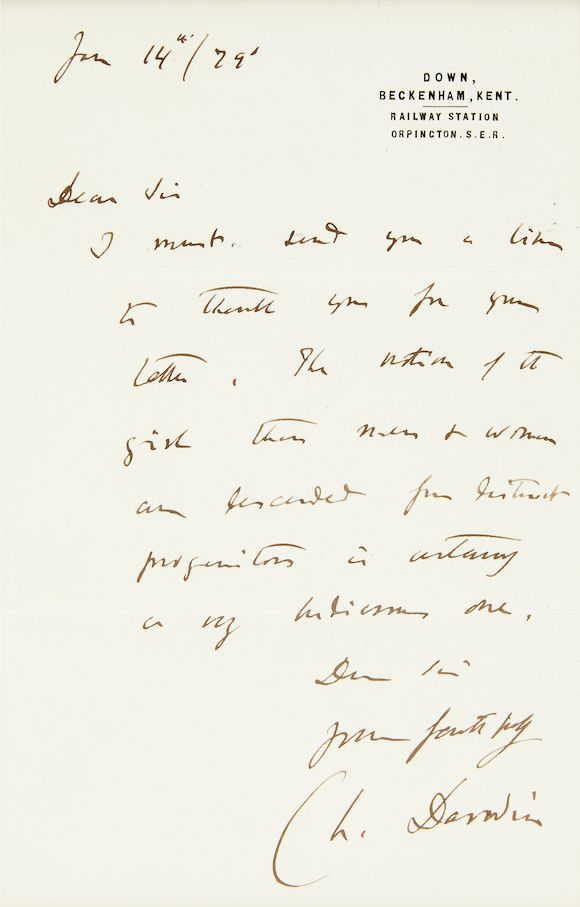 Jan 14th/79
DOWN,
BECKENHAM, KENT.
RAILWAY STATION
ORPINGTON. S.E.R.
Dear Sir
I must send you a line
to thank you for your
letter. The notion of the
girl that men & women
are descended from distinct
progenitors is certainly
a very ludicrous one.
Dear Sir
yours faithfully
Ch. Darwin